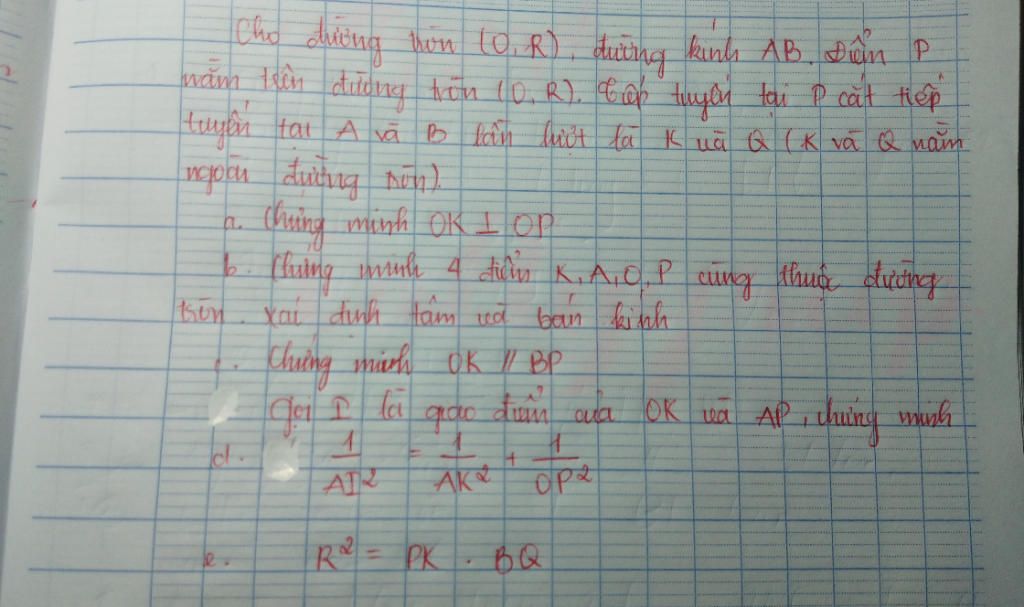 Cho đường tròn (O, R), đường kính AB. Điểm P
nằm trên đường tròn (O, R). Tiếp tuyến tại P cắt tiếp
tuyến tại A và B lần lượt là K và Q (K và Q nằm
ngoài đường tròn).
a. Chứng minh OK ⊥ OP
b. Chứng minh 4 điểm K, A, O, P cùng thuộc đường
tròn. xác định tâm và bán kính
c. Chứng minh OK // BP
Gọi I là giao điểm của OK và AP, chứng minh
d. 1/AI² = 1/AK² + 1/OP²
e. R² = PK . BQ